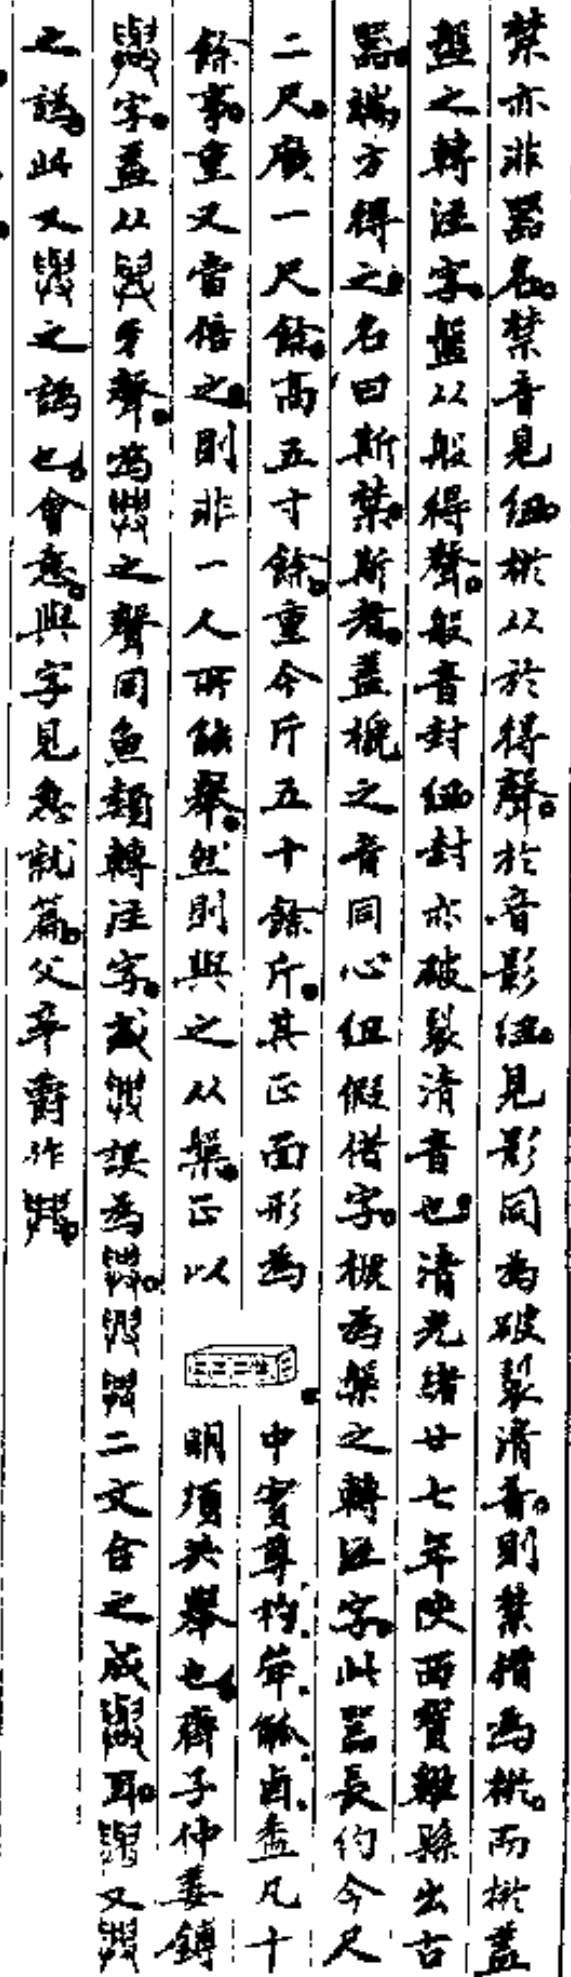 禁亦非器名。禁音見紐棜以於得聲。於音影紐。見影同為破裂清音。則禁借為棜。而棜蓋
盤之轉注字。盤以般得聲。般音封紐封亦破裂清音也。清光緒廿七年陝西寶雞縣出古
器。端方得之。名曰斯禁。斯者。蓋榹之音同心紐假借字。榹為槃之轉注字。此器長約今尺
二尺。廣一尺餘。高五寸餘。重今斤五十餘斤。其正面形為
中實尊杓斝觚卣盉凡十
餘事。重又當倍之。則非一人所能舉。然則與之从槃。正以
明須共舉也。齊子仲姜鎛
字。蓋以 牙聲。為 之聲同魚類轉注字。或 誤為 二文合之成 耳。 又
之譌。此又 之譌也。會意。與字見急就篇。父辛爵作